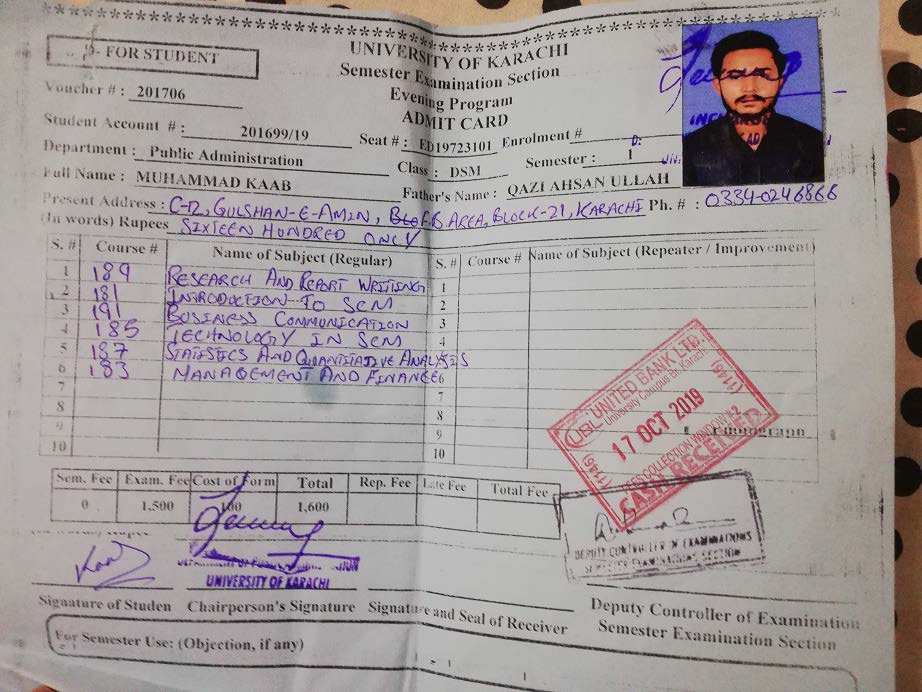 FOR STUDENT
UNIVERSITY OF KARACHI
Semester Examination Section
Evening Program
ADMIT CARD
Voucher # : 201706
Student Account # : 201699/19
Seat # : ED19723101 Enrolment #
Department : Public Administration
Class : DSM Semester : 1
Full Name : MUHAMMAD KAAB
Father's Name : QAZI AHSAN ULLAH
Present Address : C-12, GULSHAN-E-AMIN, F.B. AREA, BLOCK-21, KARACHI Ph. # : 0334-0246866
(In words) Rupees SIXTEEN HUNDRED ONLY
S. # Course # Name of Subject (Regular) S. # Course # Name of Subject (Repeater / Improvement)
1 189 RESEARCH AND REPORT WRITING 1
2 181 INTRODUCTION TO SCM 2
3 191 BUSINESS COMMUNICATION 3
4 185 TECHNOLOGY IN SCM 4
5 187 STATISTICS AND QUANTITATIVE ANALYSIS
6 183 MANAGEMENT AND FINANCE 6
7 7
8 8
9 9
10 10
UBL UNITED BANK LTD.
University Campus Br. Karachi
(1146) 17 OCT 2019 (1146)
FEES COLLECTION WINDOW # 2
CASH RECEIVED
Sem. Fee Exam. Fee Cost of Form Total Rep. Fee Late Fee Total Fee
0 1,500 100 1,600
DEPUTY CONTROLLER OF EXAMINATIONS
SEMESTER EXAMINATIONS SECTION
Kaab
UNIVERSITY OF KARACHI
Signature of Studen Chairperson's Signature Signature and Seal of Receiver
Deputy Controller of Examination
Semester Examination Section
For Semester Use: (Objection, if any)